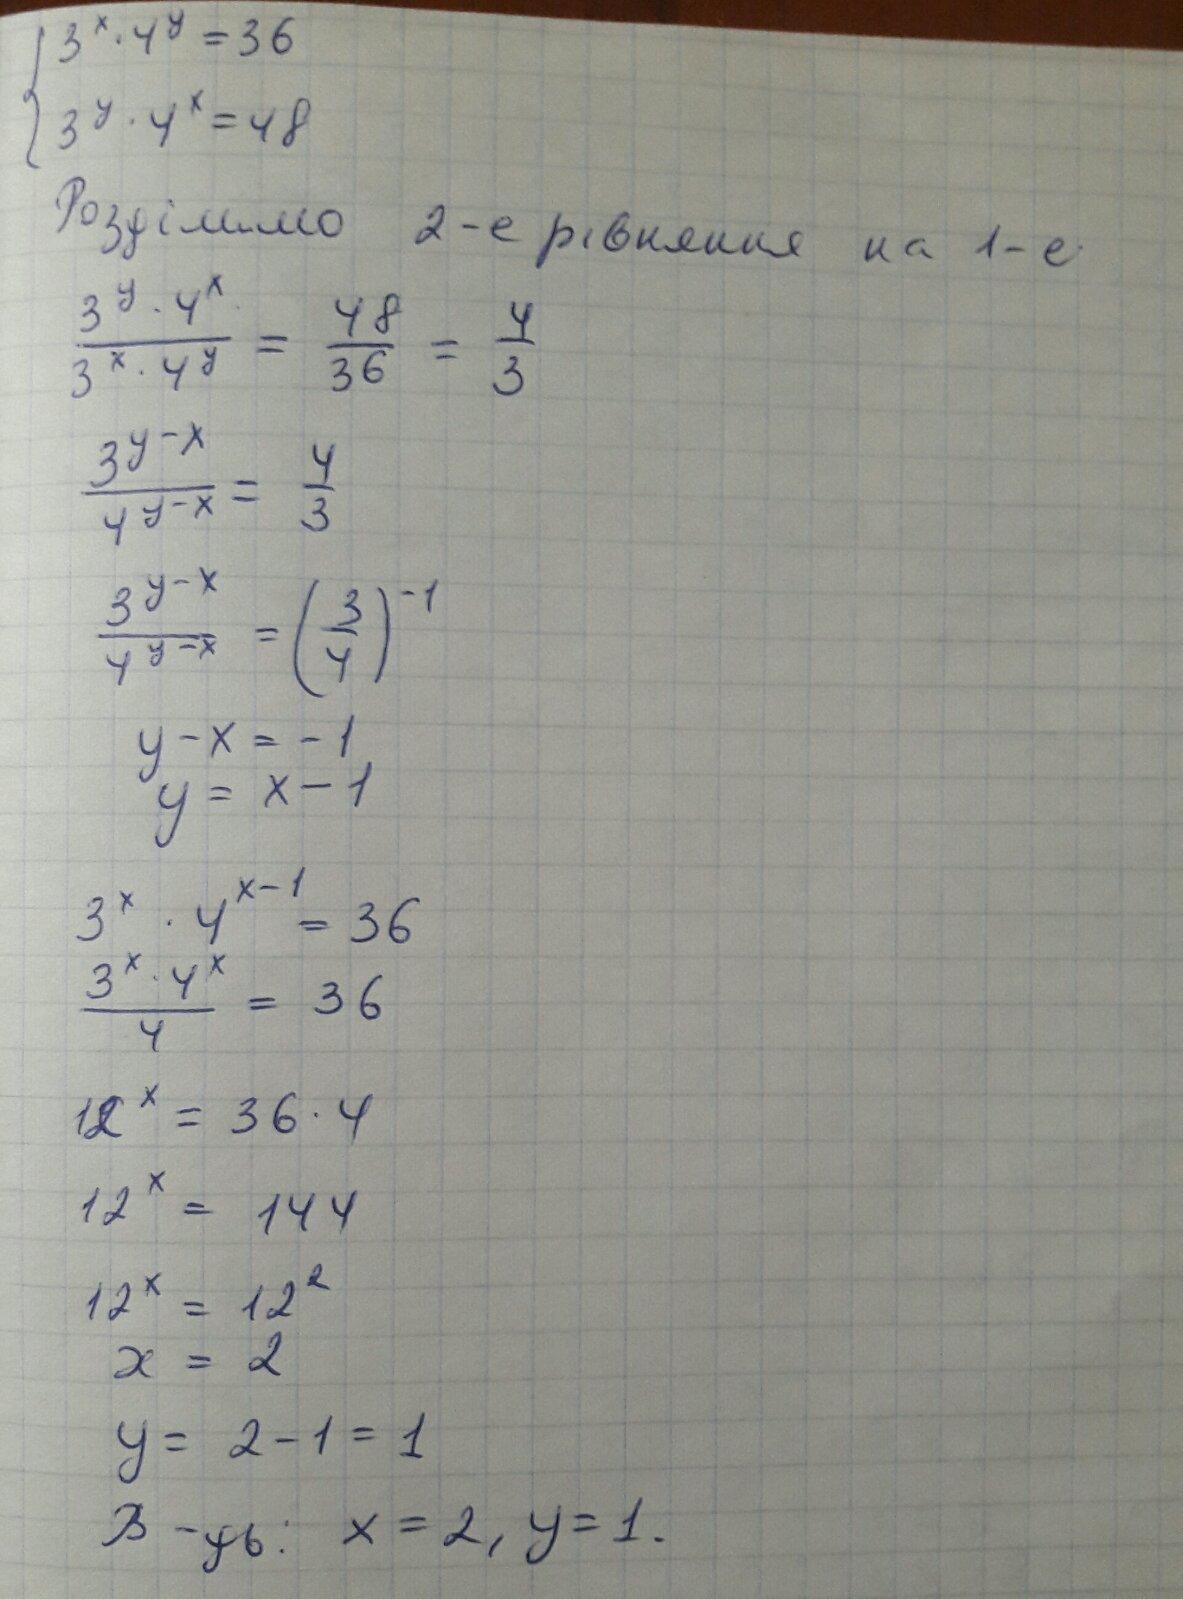 { 3^x · 4^y = 36
3^y · 4^x = 48
Розділимо 2-е рівняння на 1-е
(3^y · 4^x) / (3^x · 4^y) = 48/36 = 4/3
3^(y-x) / 4^(y-x) = 4/3
3^(y-x) / 4^(y-x) = (3/4)^(-1)
y - x = -1
y = x - 1
3^x · 4^(x-1) = 36
(3^x · 4^x) / 4 = 36
12^x = 36 · 4
12^x = 144
12^x = 12^2
x = 2
y = 2 - 1 = 1
В-дь: x = 2, y = 1.